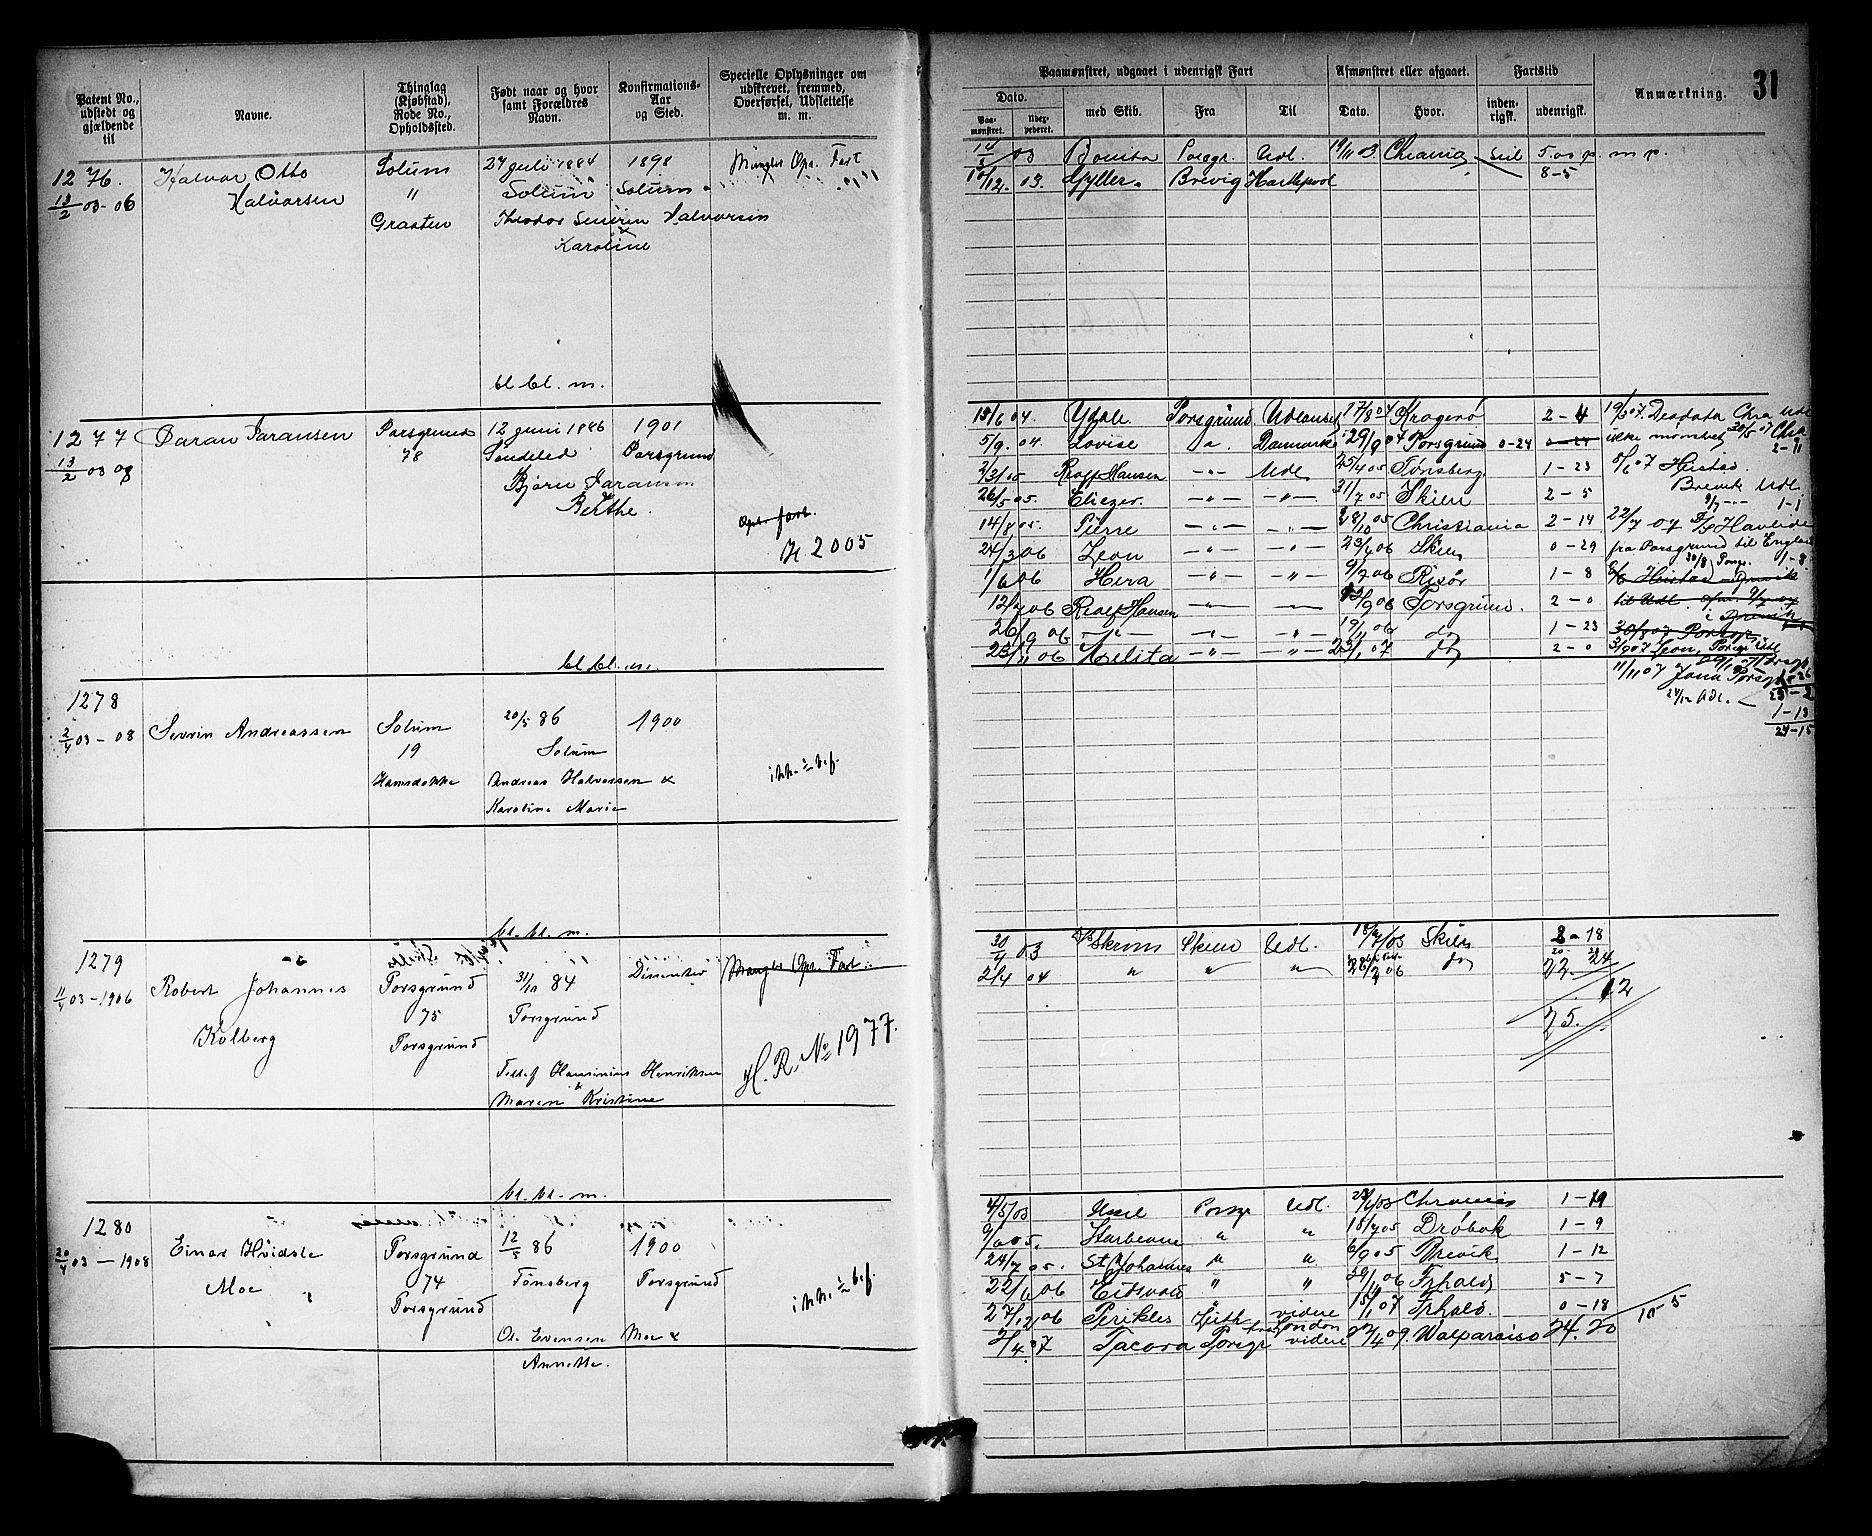 31
Patent No., udstedt og gjældende til
Navne.
Thinglag (Kjøbstad), Rode No., Opholdssted.
Født naar og hvor samt Forældres Navn.
Konfirmations-Aar og Sted.
Specielle Oplysninger om udskrevet, fremmed, Overførsel, Udslettelse m. m.
Paamønstret, udgaaet i udenrigsk Fart
Afmønstret eller afgaaet.
Fartstid
Anmærkning.
Dato.
Paa-mønstret.
med Skib.
Fra
Til
Dato.
Hvor.
inden-rigsk.
udenrigsk.
1276.
13/2 03-06
Halvor Otto
Halvorsen
Solum
"
Graaten
24 juli 1884
Solum
Theodor Severin Halvorsen
&
Karoline
1898
Solum
Mangler Opr. Fart
bl. bl. m.
14/3 03 Bonita Porsgr. Udl. 19/11 03 Chrania Seil 5.00 p. m p.
10/12. 03. Gyller. Brevig Hartlepool 8-5
1277
13/2 03 08
Daran Jaransen
Porsgrund
78
12 juni 1886
Søndeled
Bjørn Jaransen
Berthe.
1901
Porsgrund
Opr. fart.
H 2005
bl. bl. m.
15/6 04. Ydale Porsgrund Udlandet 17/8 04 Kragerø 2-4
5/9. 04. Lovise " Danmark 29/9 04 Porsgrund 0-24 0-24
2/3 05 Rolf Hansen -"- Udl. 25/4 05 Tønsberg 1-23
26/5 05. Eliezer -"- -"- 31/7 05 Skien 2-5
14/8 05. Pierre -"- -"- 28/10 05 Christiania 2-14
24/3 06 Leon -"- -"- 23/4 06 Skien 0-29
1/6 06 Hera -"- -"- 9/7 06 Risør 1-8
12/7 06 Rolf Hansen -"- -"- 12/9 06 Porsgrund. 2-0
26/9 06 -"- -"- -"- 19/11 06 do 1-23
23/11 06 Melita -"- -"- 23/1 07 do 2-0
19/3 07. Deodata Chra Udl
ikke mønstret 20/5 07 Chra.
2-11
8/6 07 Heistad.
Brevik Udl.
9/7 --
1-1
22/7 07 S/S Haverde
fra Porsgrund til England
30/8 Porsgr. 1-8
8/6 Heistad Brevik
til Udl.
i Brevik
30/8 07 Porsgr.
3/9 07 Leon, Porsgr. Udl
11/11 07 Jona Porsgr
24/12 Udl.
1-26
23-2
1-13
24-15
1278
2/4 03-08
Sevrin Andreassen
Solum
19
20/5 86
Solum
Andreas Halvorsen &
Karoline Marie
1900
bl. bl. m.
1279
11/4 03-1906
Robert Johannes
Kolberg
Porsgrund
75
Porsgrund
31/10 84
Porsgrund
Henriksen
&
Maren Kristine
Dissenter
Mangler Opr. Fart
H. R. No 1977.
bl. bl. m.
30/4 03 Skrim Skien Udl. 18/7 03 Skien 2-18
2/4 04 " " " 28/2 06 do 22 24
12
25.
1280
20/4 03-1908
Einar
Moe
Porsgrund
74
Porsgrund
12/5 86
Tønsberg
Ole Evensen Moe &
Annette.
1900
Porsgrund
4/5 03 Porsgr Udl. Chrania 1-19
9/6 05. " " 18/7 05 Drøbak 1-9
24/7 05. St Johannes " " 6/9 05 Brevik 1-12
22/6 06 Eidsvold " " 29/11 06 Frhald 5-7
27/12 06 Perikles Leith videre 15/1 07 Frhald. 0-18
fra London
2/4 07 Tacora Porsgr videre 22/4 09 Walparaiso 24.20
10-5